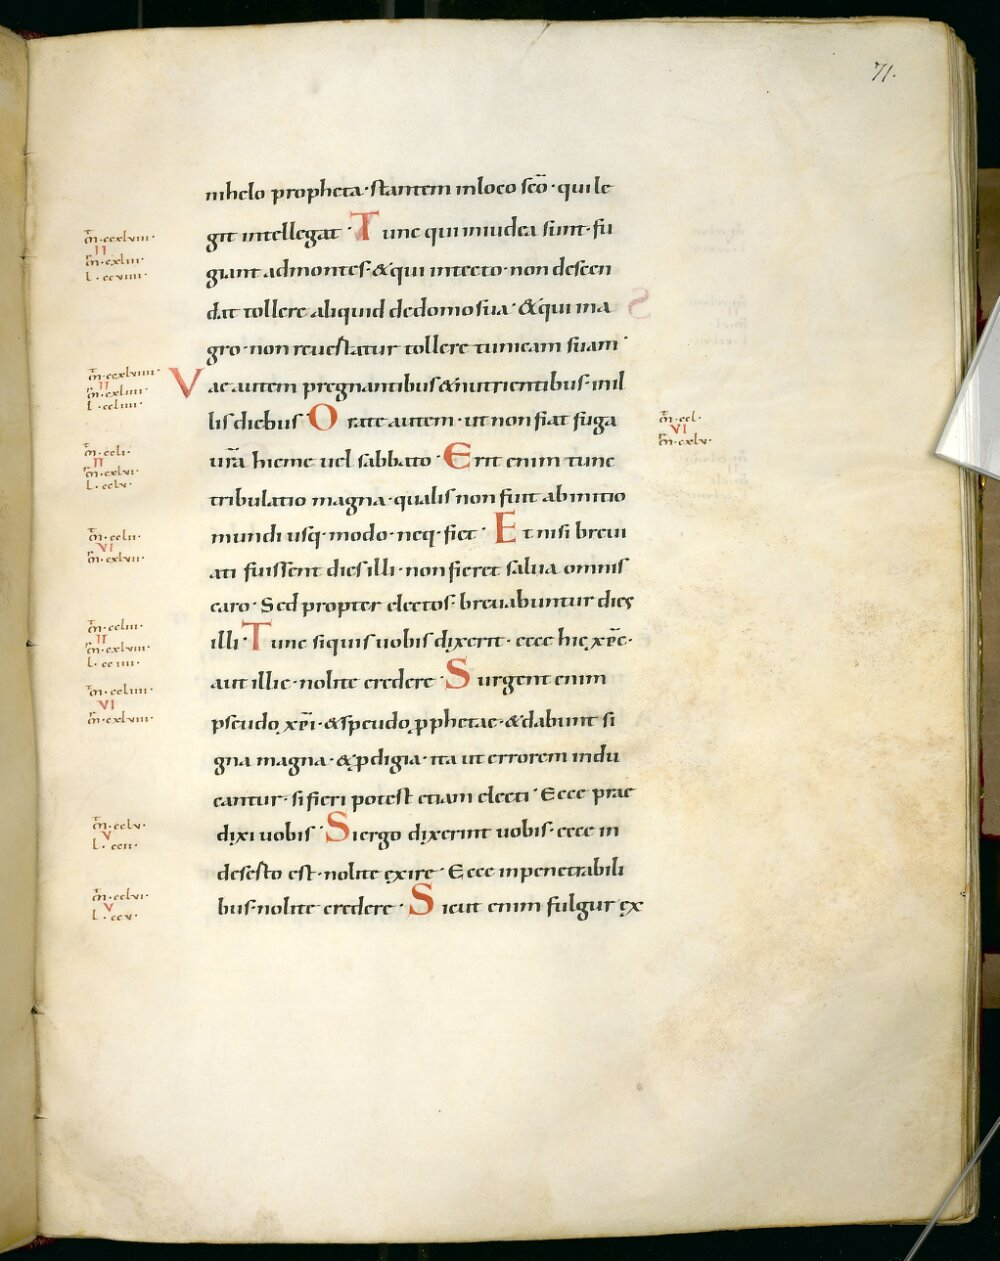 71.
nihelo propheta · stantem inloco sc̄o · qui le
git intellegat · Tunc qui iniudea sunt · fu
giant admontes · & qui intecto · non descen
dat tollere aliquid dedomo sua · & qui ina
gro · non reuestatur tollere tunicam suam ·
Vae autem pregnantibus & nutrientibus · inil
lis diebus · Orate autem · ut non fiat fuga
ur̄a hieme uel sabbato · Erit enim tunc
tribulatio magna · qualis non fuit abinitio
mundi usq · modo · neq · fiet · Et nisi breui
ati fuissent dies illi · non fieret salua omnis
caro · Sed propter electos · breuiabuntur dies
illi · Tunc siquis uobis dixerit · ecce hic xp̄c ·
aut illic · nolite credere · Surgent enim
pseudo xp̄i · & speudo pphetae · & dabunt si
gna magna · & pdigia · ita ut errorem indu
cantur · si fieri potest etiam electi · Ecce prae
dixi uobis · Si ergo dixerint uobis · ecce in
desesto est · nolite exire · Ecce inpenetrabili
bus · nolite credere · Sicut enim fulgur ex
m̄ · ccxlviii ·
II
m̄ · cxliii ·
l · ccviiii ·
m̄ · ccxlviiii ·
II
m̄ · cxliiii ·
l · ccliiii ·
m̄ · ccl ·
VI
m̄ · cxlv ·
m̄ · ccli ·
II
m̄ · cxlvi ·
l · cclv ·
m̄ · cclii ·
VI
m̄ · cxlvii ·
m̄ · ccliii ·
II
m̄ · cxlviii ·
l · cciiii ·
m̄ · ccliiii ·
VI
m̄ · cxlviiii ·
m̄ · cclv ·
V
l · ccii ·
m̄ · cclvi ·
V
l · ccv ·